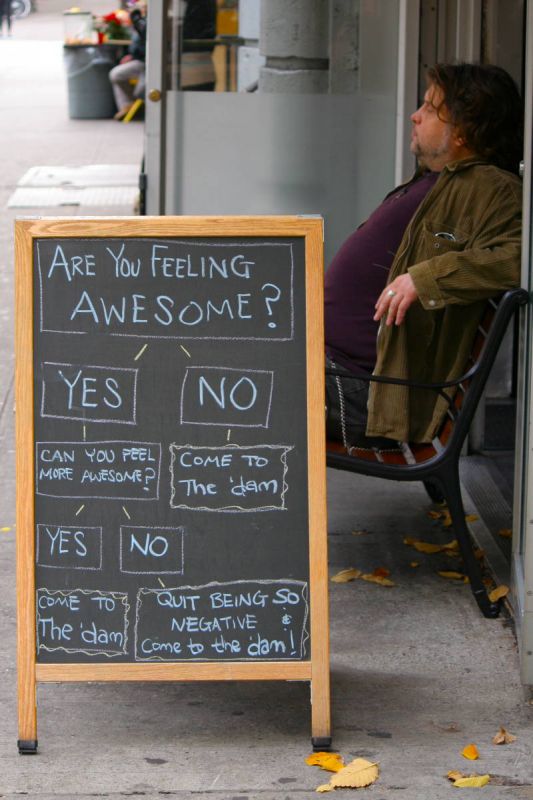 ARE YOU FEELING
AWESOME?
YES
NO
CAN YOU FEEL
MORE AWESOME?
COME TO
The 'dam
YES
NO
COME TO
The 'dam
QUIT BEING SO
NEGATIVE &
Come to the 'dam!